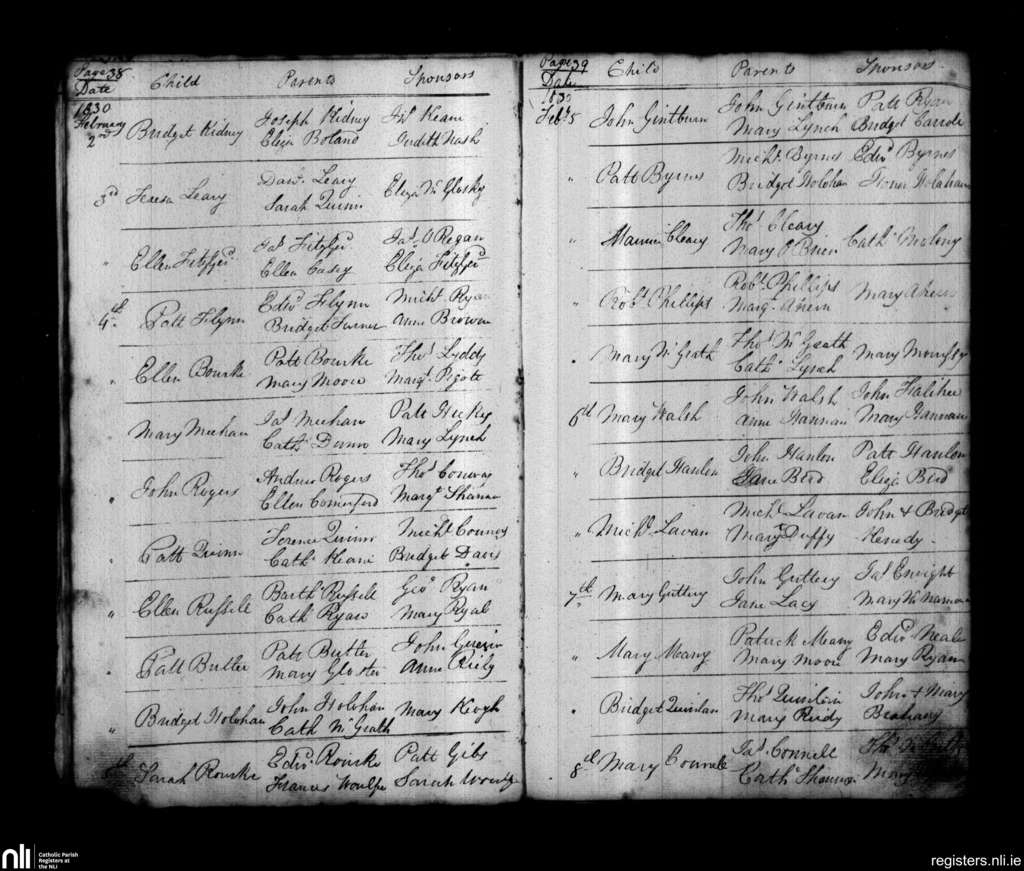 Page 38
Date Child Parents Sponsors
1830
February
2nd Bridget Kidney Joseph Kidney Jas Keane
Eliza Boland Judith Nash
3rd Teresa Leary Danl. Leary Eliza McGlosky
Sarah Quinn
" Ellen Fitzgerd Jas Fitzgerd Jas O Regan
Ellen Casey Eliza Fitzgerd
4th Patt Flynn Edwd Flynn Michl. Ryan
Bridget Turner Anne Browne
" Ellen Bourke Patt Bourke Thos Lyddy
Mary Moore Margt. Pigott
Mary Meehan Jas Meehan Patt Hickey
Cath. Dunn Mary Lynch
" John Rogers Andrew Rogers Thos Conway
Ellen Comerford Margt Shannon
" Patt Quinn Terence Quinn Michl. Connors
Cath. Keane Bridget Davis
" Ellen Russele Barth Russele Geo Ryan
Cath Ryan Mary Ryal
" Patt Butler Patt Butler John
Mary Gloster Anne Riely
" Bridget Holohan John Holohan Mary Keogh
Cath McGrath
5th Sarah Rourke Edwd. Rourke Patt Gibs
Frances Woulfe Sarah Woulfe
Page 39
Date Child Parents Sponsors
1830
Feb. 5 John Gintburn John Gintburn Patt Ryan
Mary Lynch Bridget Carrole
" Patt Byrns Michl. Byrns Edwd Byrns
Bridget Holohan Holahan
" Maurice Cleary Thos Cleary Cath. Molony
Mary O'Brien
" Robt Phillips Robt. Phillips Mary Ahern
Margt. Ahern
" Mary McGrath Thos McGrath Mary Morrissy
Cath. Lynch
6th Mary Walsh John Walsh John Halihee
Anne Hannan Mary Hannan
" Bridget Hanlon John Hanlon Patt Hanlon
Jane Bird Eliza Bird
" Michl. Lavan Michl. Lavan John & Bridget
Mary Duffy Kenedy
7th Mary Guttery John Guttery Jas Enright
Jane Lacy Mary McNamara
" Mary Meany Patrick Meany Edwd Neale
Mary Moore Mary Ryan
" Bridget Quinlan Thos Quinlan John & Mary
Mary Reidy
8th Mary Connele Jas Connele Thos
Cath. Shannon Mary
nli Catholic Parish
Registers at
the NLI
registers.nli.ie